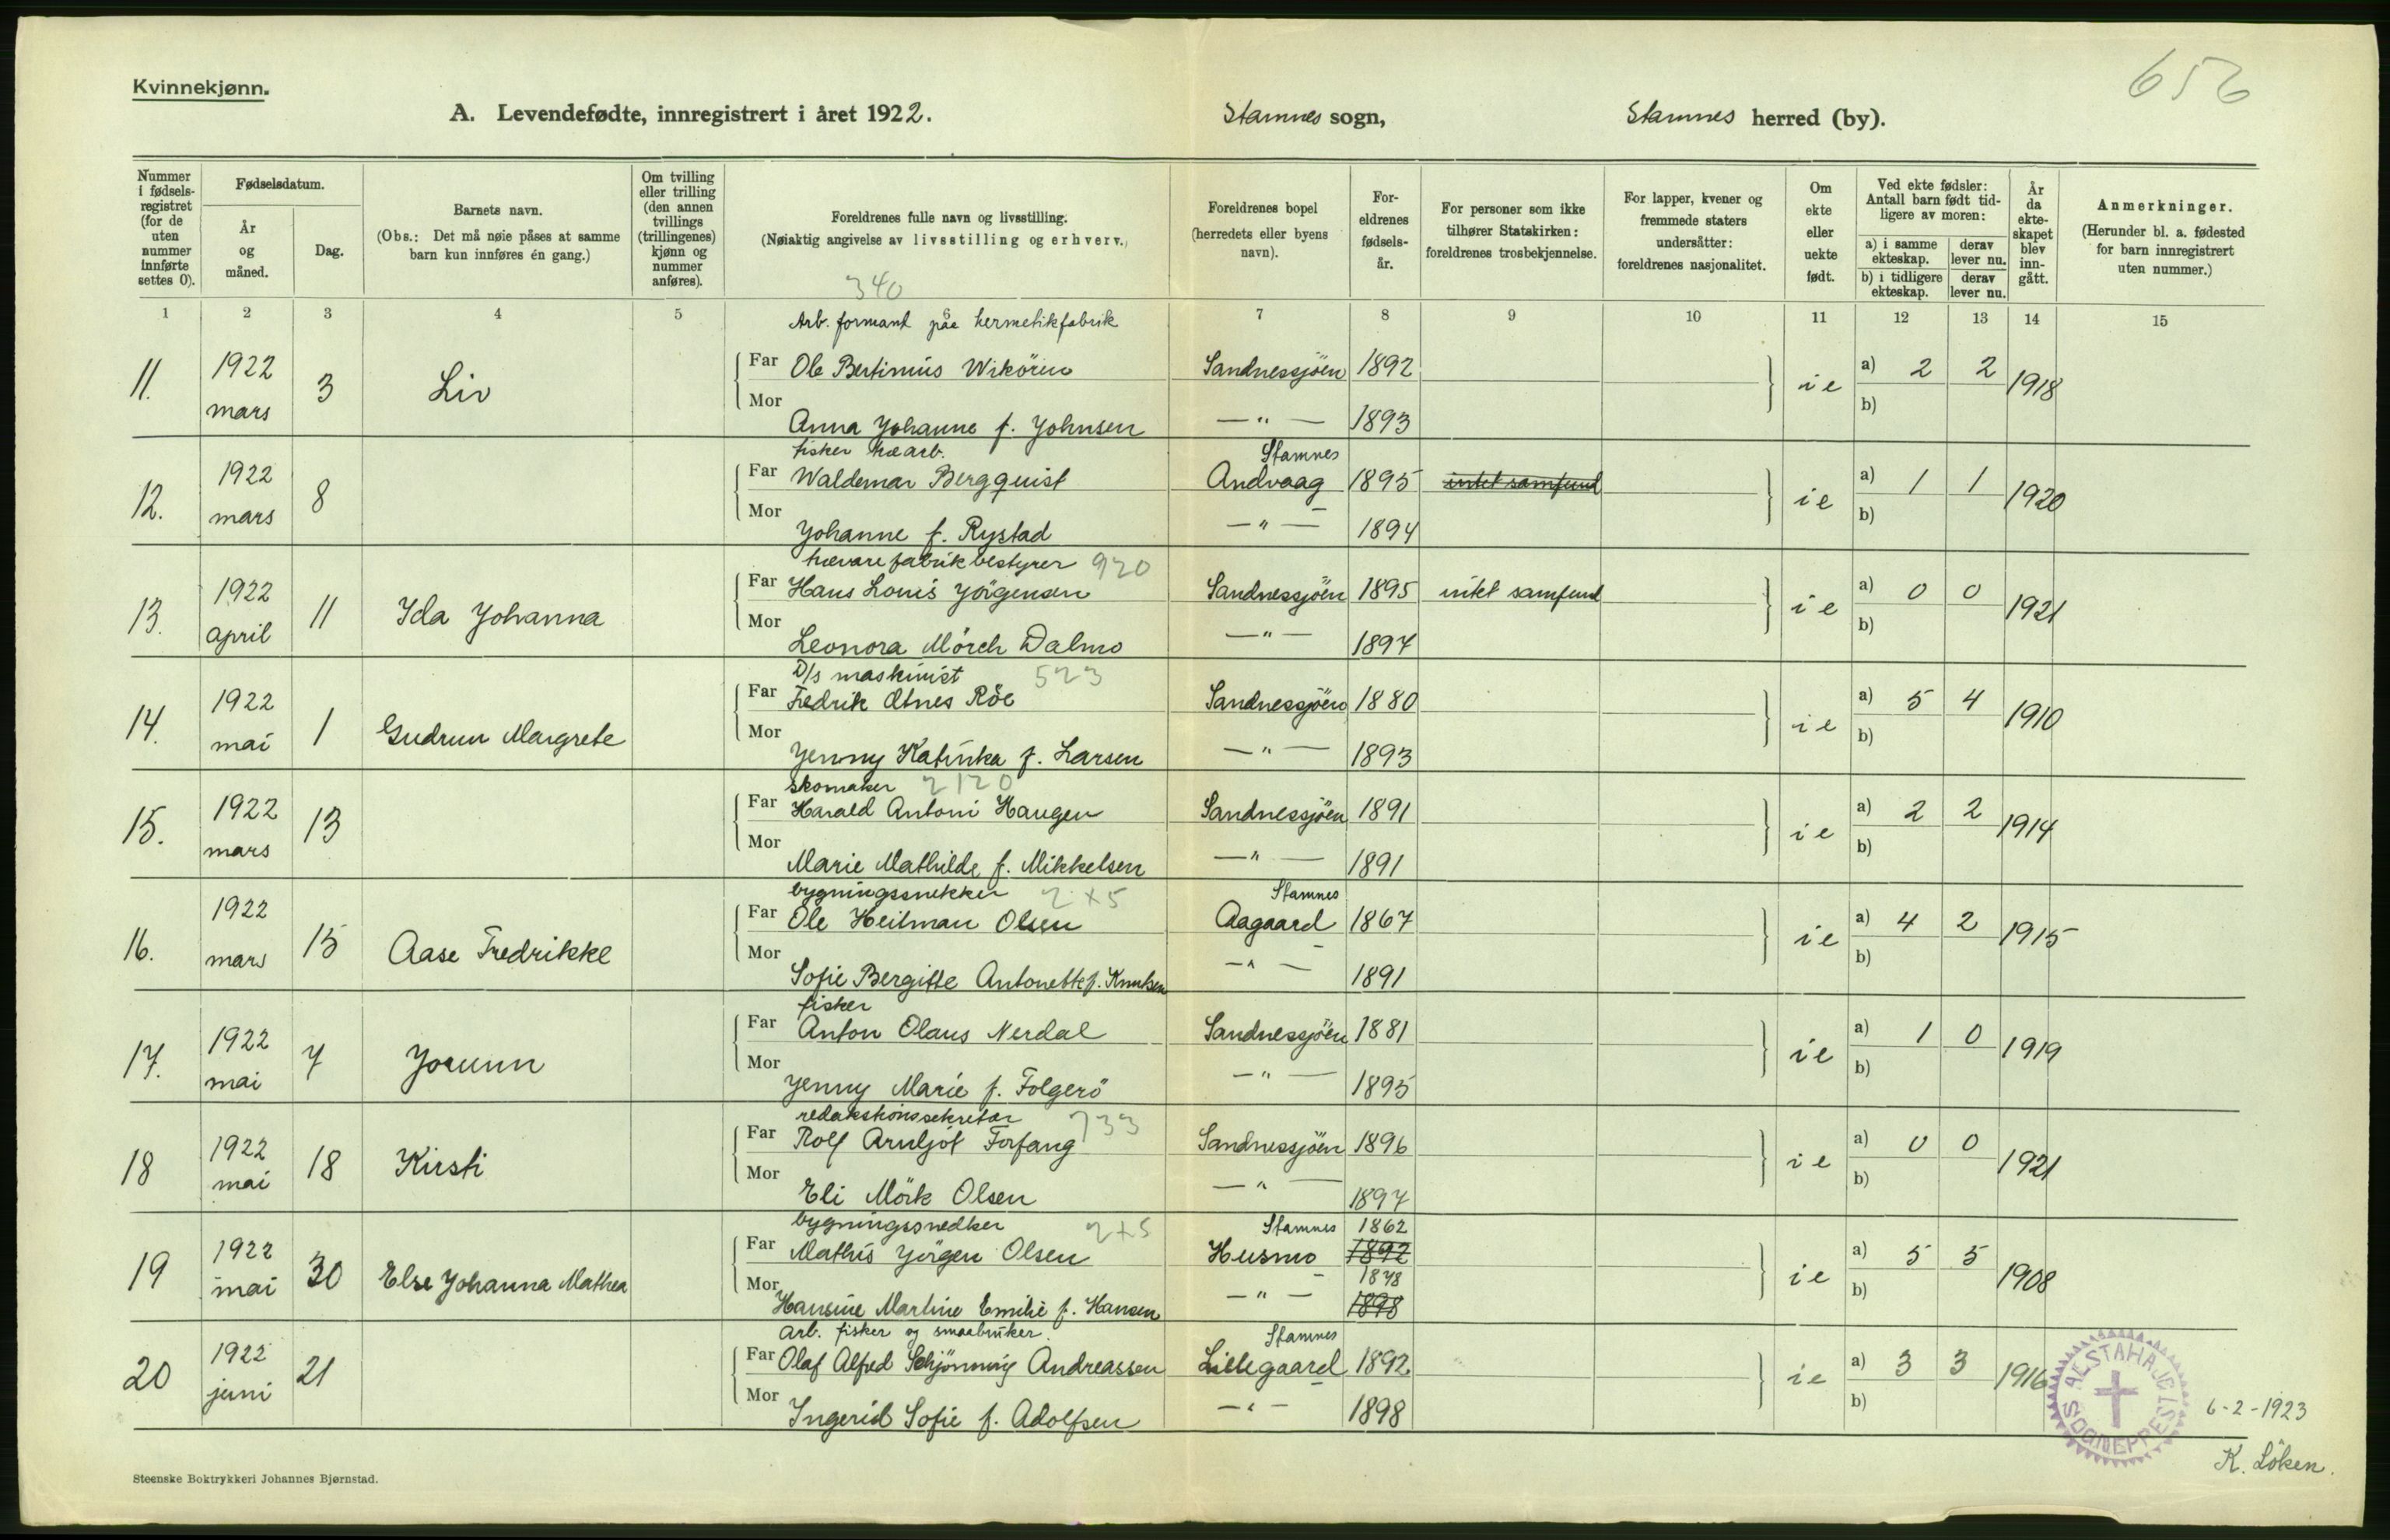 Kvinnekjønn.
656
A. Levendefødte, innregistrert i året 1922. Stamnes sogn, Stamnes herred (by).
Nummer i fødsels-registret (for de uten nummer innførte settes 0).
Fødselsdatum.
År og måned.
Dag.
Barnets navn.
(Obs.: Det må nøie påses at samme barn kun innføres én gang.)
Om tvilling eller trilling (den annen tvillings (trillingenes) kjønn og nummer anføres).
Foreldrenes fulle navn og livsstilling.
(Nøiaktig angivelse av livsstilling og erhverv.)
Foreldrenes bopel (herredets eller byens navn).
For-eldrenes fødsels-år.
For personer som ikke tilhører Statskirken: foreldrenes trosbekjennelse.
For lapper, kvener og fremmede staters undersåtter: foreldrenes nasjonalitet.
Om ekte eller uekte født.
Ved ekte fødsler: Antall barn født tid-ligere av moren:
a) i samme ekteskap. derav lever nu.
b) i tidligere ekteskap. derav lever nu.
År da ekte-skapet blev inn-gått.
Anmerkninger.
(Herunder bl. a. fødested for barn innregistrert uten nummer.)
340
1 2 3 4 5 6 7 8 9 10 11 12 13 14 15
Arb. formant paa hermetikfabrik
11. 1922 mars 3 Liv Far Ole Bertinius Wikören Sandnessjöen 1892 i e a) 2 2 1918
Mor Anna Johanne f. Johnsen — " — 1893 b)
fisker træarb. Stamnes
12. 1922 mars 8 Far Waldemar Bergquist Andvaag 1895 intet samfund i e a) 1 1 1920
Mor Johanne f. Rystad — " — 1894 b)
trævarefabrikbestyrer 920
13. 1922 april 11 Ida Johanna Far Hans Louis Jörgensen Sandnessjöen 1895 intet samfund i e a) 0 0 1921
Mor Leonora Mörch Dalmo — " — 1897 b)
D/s maskinist 523
14. 1922 mai 1 Gudrun Margrete Far Fredrik Röe Sandnessjöen 1880 i e a) 5 4 1910
Mor Jenny Katinka f. Larsen — " — 1893 b)
skomaker 2120
15. 1922 mars 13 Far Harald Antoni Haugen Sandnessjöen 1891 i e a) 2 2 1914
Mor Marie Mathilde f. Mikkelsen — " — 1891 b)
bygningssnekker 2x5 Stamnes
16. 1922 mars 15 Aase Fredrikke Far Ole Heitman Olsen Aagaard 1867 i e a) 4 2 1915
Mor Sofie Bergitte Antonette f. Knutsen — " — 1891 b)
fisker
17. 1922 mai 7 Jorunn Far Anton Olaus Nerdal Sandnessjöen 1881 i e a) 1 0 1919
Mor Jenny Marie f. Folgerö — " — 1895 b)
redaksjonssekretær 733
18 1922 mai 18 Kirsti Far Rolf Arnljot Forfang Sandnessjöen 1896 i e a) 0 0 1921
Mor Eli Mörk Olsen — " — 1897 b)
bygningssnedker 2x5 Stamnes 1862
19 1922 mai 30 Else Johanna Mathea Far Mathis Jörgen Olsen Husmo 1892 i e a) 5 5 1908
1878
Mor Hansine Martine Emilie f. Hansen — " — 1898 b)
Arb. fisker og smaabruker. Stamnes
20 1922 juni 21 Far Olaf Alfred Schjönning Andreassen Lillegaard 1892 i e a) 3 3 1916
Mor Ingerid Sofie f. Adolfsen — " — 1898 b)
ALSTAHAUG SOGNEPREST
6-2-1923
K. Löken.
Steenske Boktrykkeri Johannes Bjørnstad.